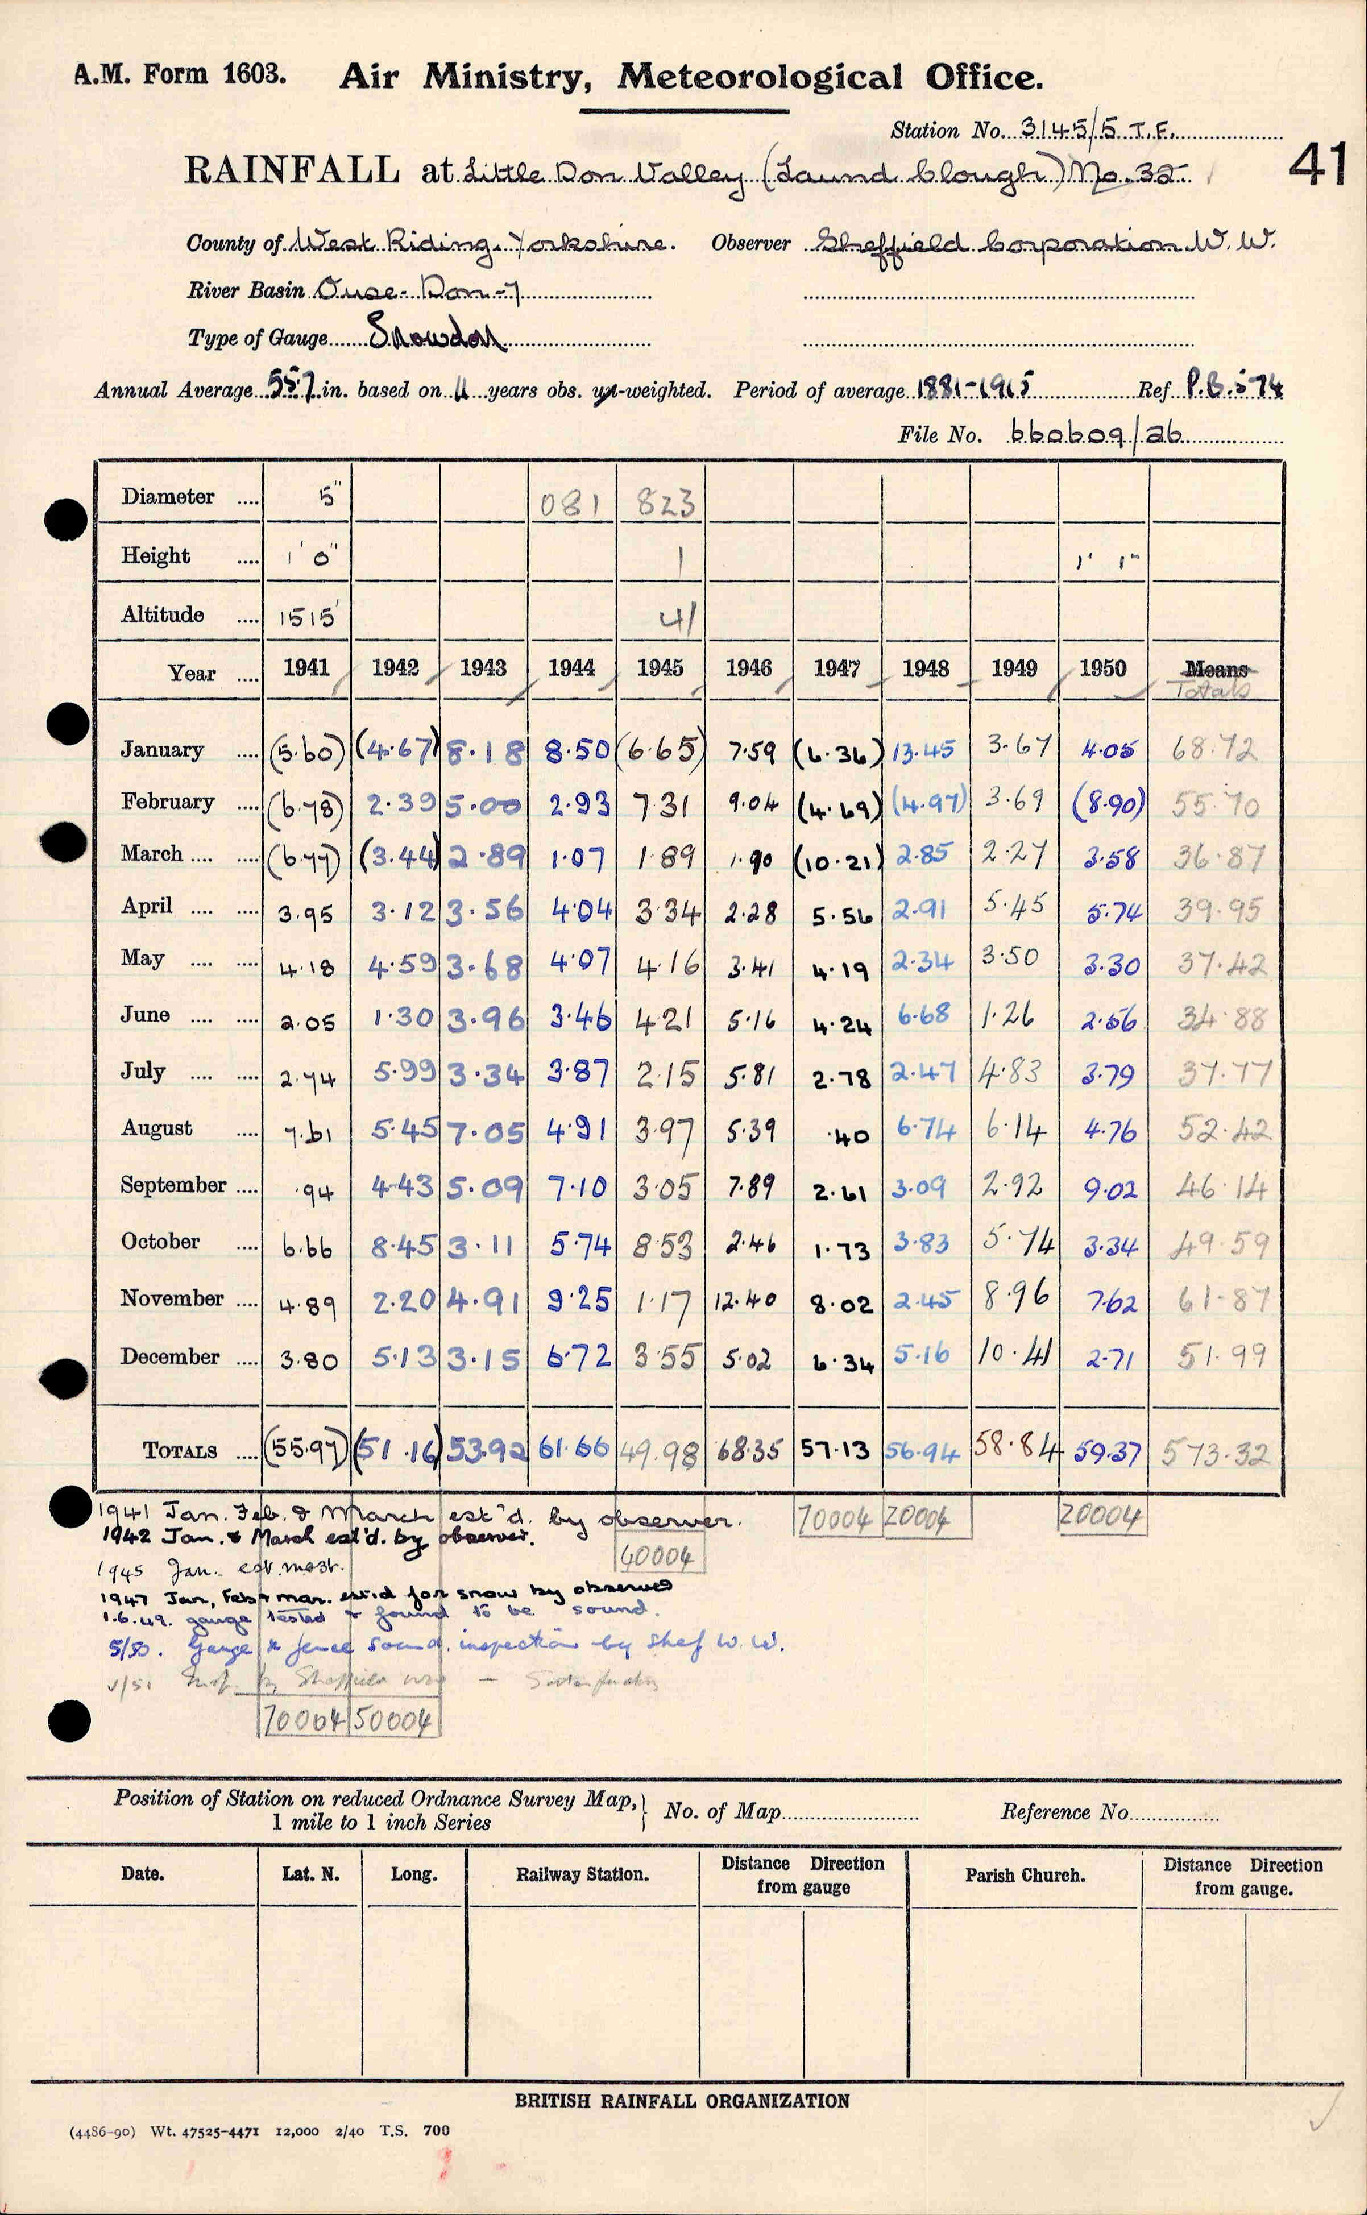 A.M. Form 1603. Air Ministry, Meteorological Office.
Station No. 3145/5 T.F.
41
RAINFALL at Little Don Valley (Laund Clough) No. 32
County of West Riding. Yorkshire. Observer Sheffield Corporation W. W.
River Basin Ouse - Don - 7
Type of Gauge Snowdon
Annual Average 55.7 in. based on 11 years obs. un-weighted. Period of average 1881-1915 Ref P.B. 574
File No. 660609/26
Diameter .... 5" 081 823
Height .... 1' 0" 1 1' 1"
Altitude .... 1515' 41
Year .... 1941 1942 1943 1944 1945 1946 1947 1948 1949 1950 Means
Totals
January .... (5.60) (4.67) 8.18 8.50 (6.65) 7.59 (6.36) 13.45 3.67 4.05 68.72
February .... (6.78) 2.39 5.00 2.93 7.31 9.04 (4.69) (4.97) 3.69 (8.90) 55.70
March .... .... (6.77) (3.44) 2.89 1.07 1.89 1.90 (10.21) 2.85 2.27 3.58 36.87
April .... .... 3.95 3.12 3.56 4.04 3.34 2.28 5.56 2.91 5.45 5.74 39.95
May .... .... 4.18 4.59 3.68 4.07 4.16 3.41 4.19 2.34 3.50 3.30 37.42
June .... .... 2.05 1.30 3.96 3.46 4.21 5.16 4.24 6.68 1.26 2.56 34.88
July .... .... 2.74 5.99 3.34 3.87 2.15 5.81 2.78 2.47 4.83 3.79 37.77
August .... 7.61 5.45 7.05 4.91 3.97 5.39 .40 6.74 6.14 4.76 52.42
September .... .94 4.43 5.09 7.10 3.05 7.89 2.61 3.09 2.92 9.02 46.14
October .... 6.66 8.45 3.11 5.74 8.53 2.46 1.73 3.83 5.74 3.34 49.59
November .... 4.89 2.20 4.91 9.25 1.17 12.40 8.02 2.45 8.96 7.62 61.87
December .... 3.80 5.13 3.15 6.72 3.55 5.02 6.34 5.16 10.41 2.71 51.99
TOTALS .... (55.97) (51.16) 53.92 61.66 49.98 68.35 57.13 56.94 58.84 59.37 573.32
1941 Jan. Feb. & March est'd. by observer. 70004 20004 20004
1942 Jan. & March est'd. by observer.
60004
1945 Jan. est. most.
1947 Jan, Feb & mar. est'd for snow by observer
1.6.49. gauge tested & found to be sound.
5/50. Gauge & fence sound. inspection by Shef W. W.
/51 Insp. by Sheffield - Satisfactory
70004 50004
Position of Station on reduced Ordnance Survey Map, } No. of Map Reference No.
1 mile to 1 inch Series
Date. Lat. N. Long. Railway Station. Distance Direction from gauge Parish Church. Distance Direction from gauge.
BRITISH RAINFALL ORGANIZATION
(4486-90) Wt. 47525-4471 12,000 2/40 T.S. 700